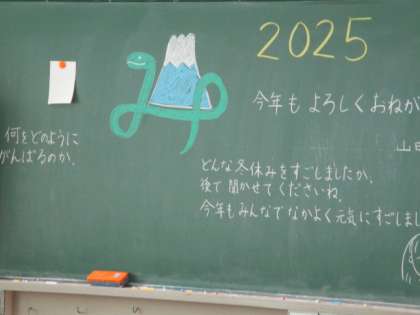 2025
今年もよろしくおねが
山田
何をどのように
がんばるのか、
どんな冬休みをすごしましたか、
後で聞かせてくださいね。
今年もみんなでなかよく元気にすごしまし